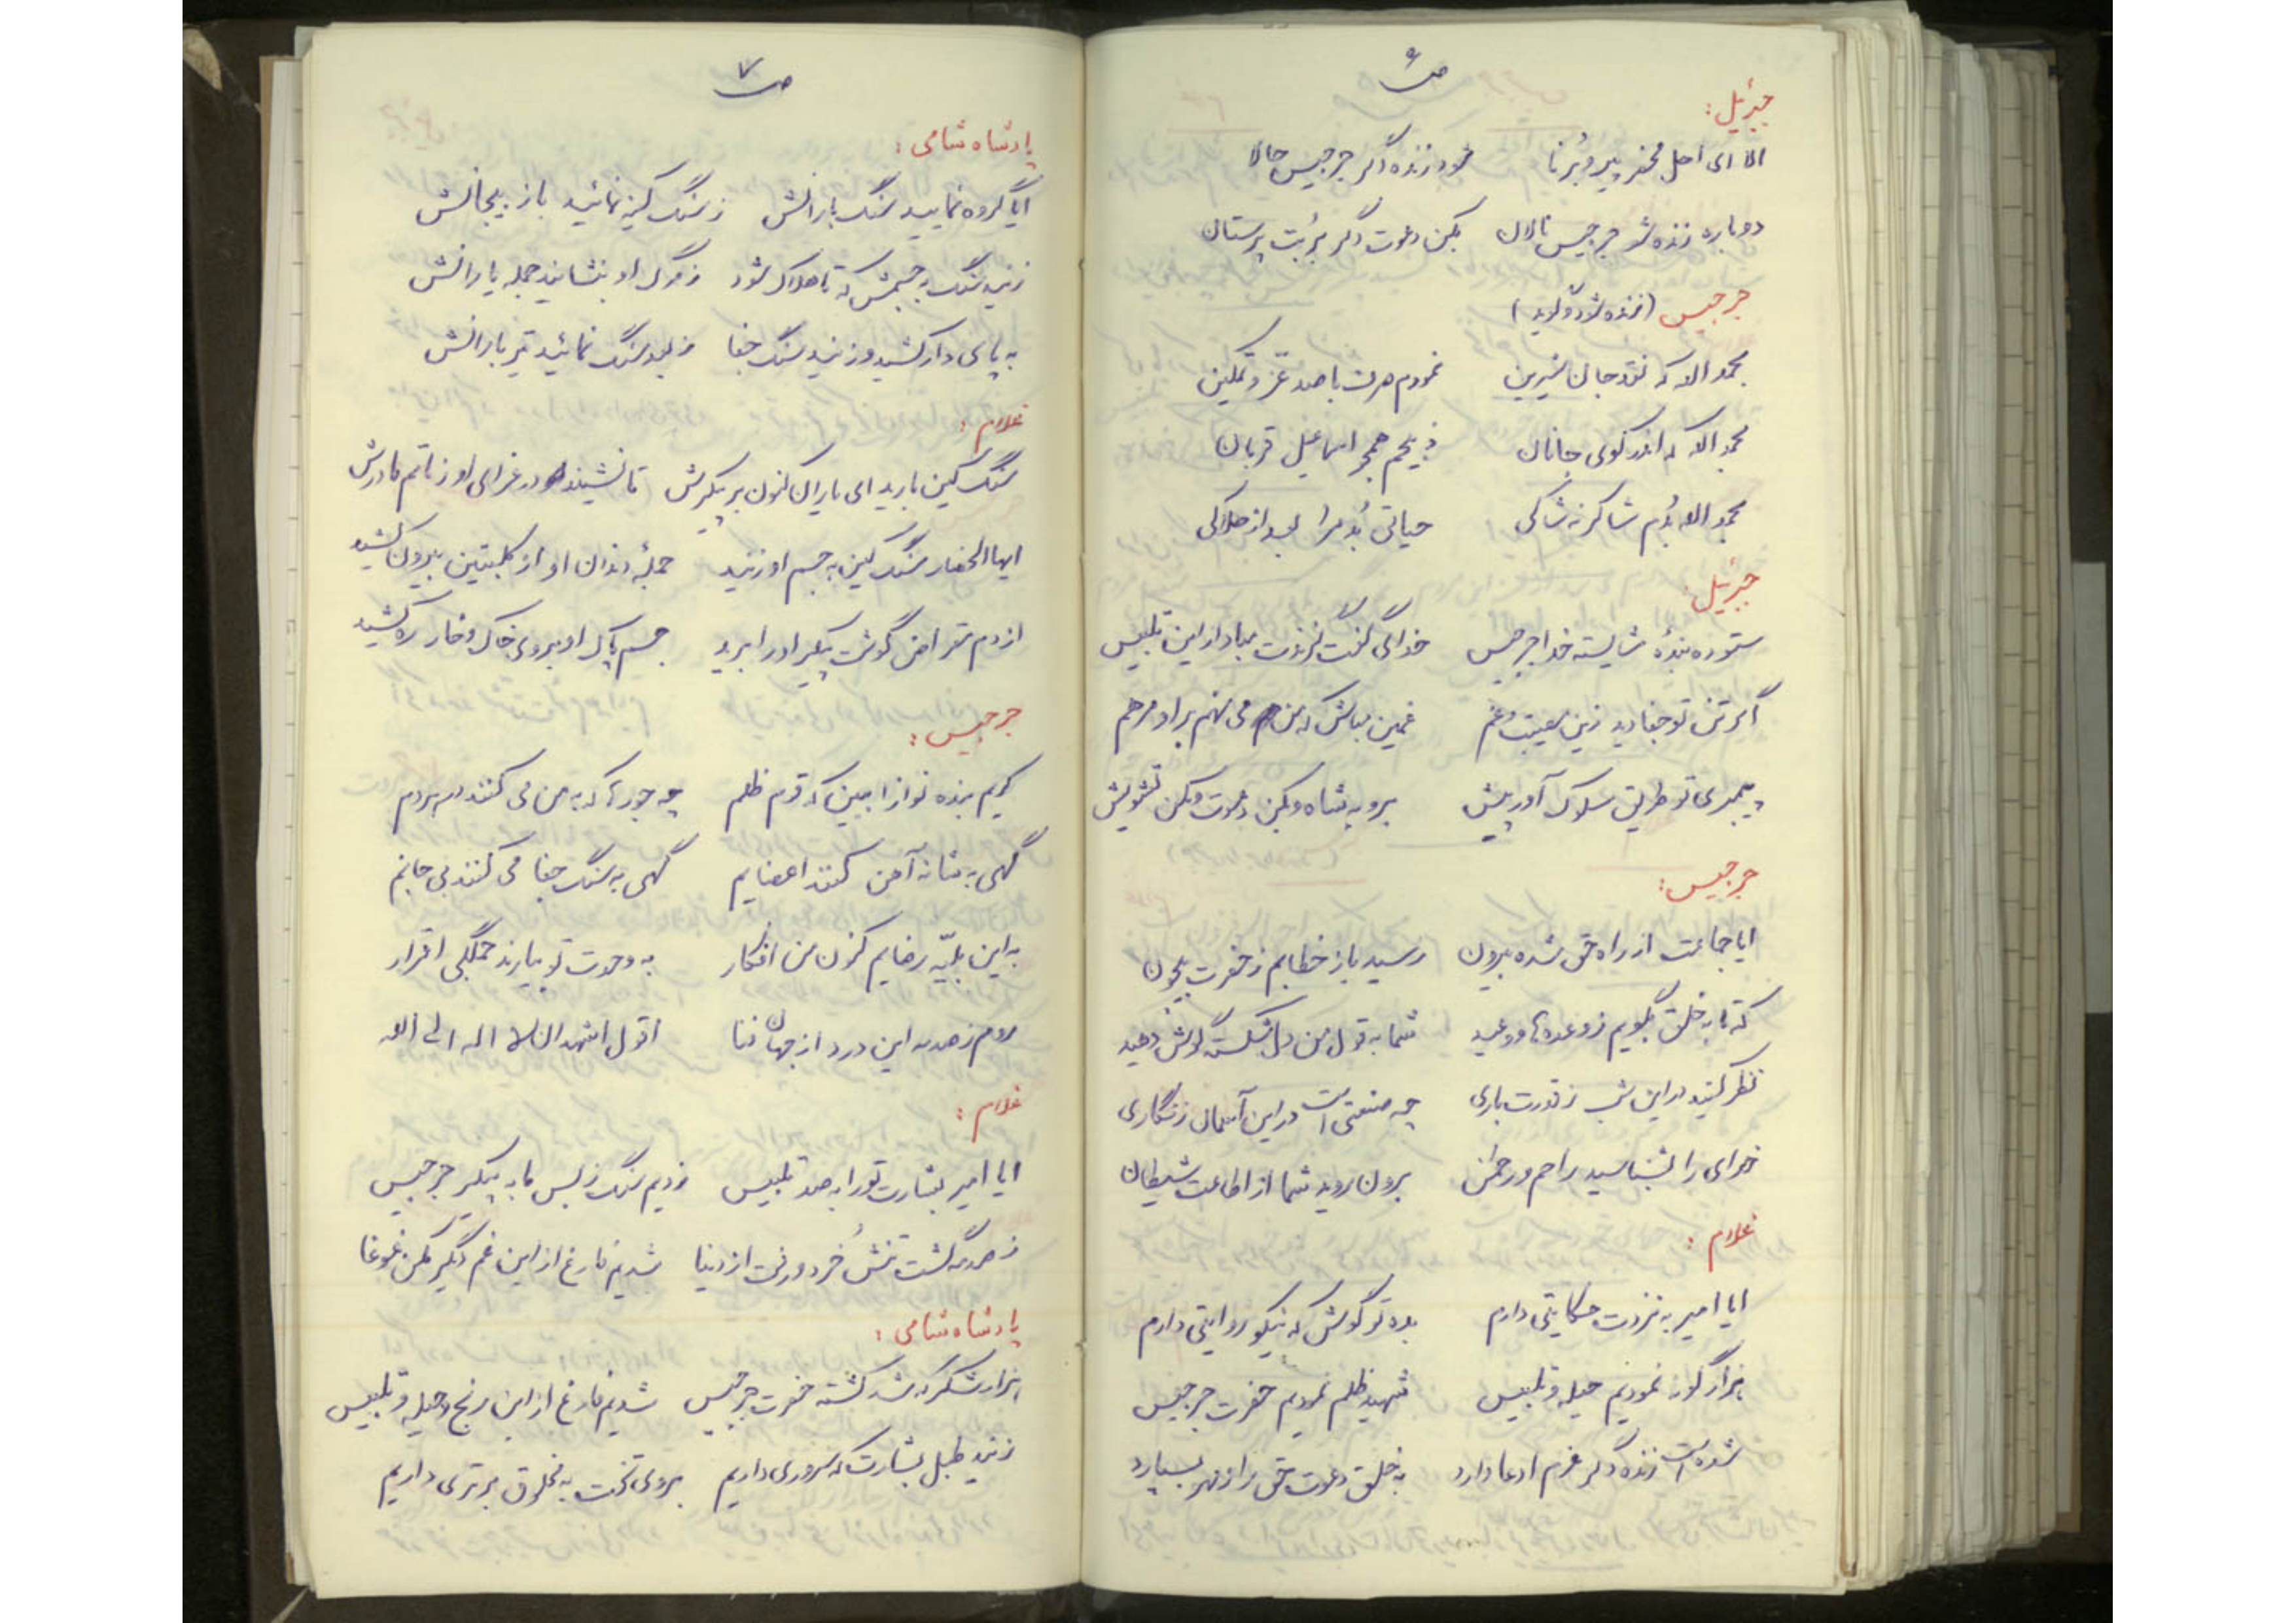 ص ۶
جبرئیل :
الا ای اهل محضر پیر و بُرنا نمود زنده دگر جرجیس حالا
دوباره زنده شو جرجیس نالان بکن دعوت دگر بر بُت پرستان
جرجیس (زنده شود و گوید)
بحمد الله که نقد جان شیرین نمودم صرف با صد عزّ و تمکین
بحمد الله که اندر کوی جانان ذبیحم همچو اسماعیل قربان
بحمد الله بُدم شاکر نه شاکی حیاتی بُد مرا بعد از هلاکی
جبرئیل :
ستوده بندهٔ شایسته خدا جرجیس خدای گفت گزندت مباد از این تلبیس
اگر تن تو جفا دید زین مصیبت و غم غمین مباش که من می نهم بر او مرهم
پیمبری تو طریق سلوک آور پیش برو به شاه و بکن دعوت و مکن تشویش
جرجیس :
ایا جماعت از راه حق شده بیرون رسید باز خطابم ز حضرت بیچون
که تا به خلق بگویم ز وعده ها و وعید شما به قول من دل شکسته گوش دهید
نظر کنید در این شب ز قدرت باری چه صنعتی است در این آسمان زنگاری
خدای را بشناسید راحم و رحمان برون روید شما از اطاعت شیطان
غلام :
ایا امیر به نزدت حکایتی دارم بده تو گوش که نیکو روایتی دارم
هزار گونه نمودیم حیله و تلبیس شهید ظلم نمودیم حضرت جرجیس
شده است زنده دگر عزم ادعا دارد به خلق دعوت حق را ز مهر بسپارد
ص ۷
پادشاه شامی :
ایا گروه نمایید سنگ بارانش ز سنگ کینه نمائید باز بیجانش
زنید سنگ به جسمش که تا هلاک شود ز مرگ او بنشانید جمله یارانش
به پای دار کشید و زنید سنگ جفا ز بعد سنگ نمائید تیر بارانش
غلام :
سنگ کین بارید ای یاران کنون بر پیکرش تا نشیند در عزای او ز ماتم مادرش
ایها الحضار سنگ کین به جسم او زنید جملهٔ دندان او از کلبتین بیرون کشید
از دم مقراض گوشت پیکر او را برید جسم پاک او بروی خاک و خاره کشید
جرجیس :
کریم بنده نوازا ببین که قوم ظلم چه جورها که به من می کنند هر دم
گهی به شانه آهن کنند اعضایم گهی به سنگ جفا می کنند بی جانم
به این بلیّه رضایم کنون من افکار به وحدت تو بیارند جملگی اقرار
روم ز صدمه این درد از جهان فنا اقول اشهد ان لا اله الی الله
غلام :
ایا امیر بشارت تو را به صد تلبیس زدیم سنگ ز بس ما به پیکر جرجیس
ز صدمه گشت تنش خُرد و رفت از دنیا شدیم فارغ از این غم دگر مکن غوغا
پادشاه شامی :
هزار شکر که شد کشته حضرت جرجیس شدیم فارغ از این رنج و حیله و تلبیس
زنید طبل بشارت که سروری داریم بروی تخت به مخلوق برتری داریم